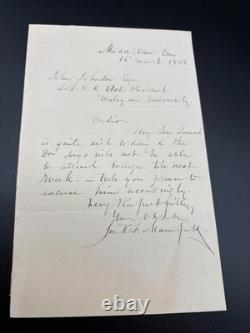 Middletown Con
March
John Johnston Esq
Act President
Wesleyan University.
Dr Sir
My Son Samuel
is quite sick to day & the
Dr Says will not be able
to attend College the next
Week — Will you please to
excuse him accordingly.
Very Respectfully
Your Obt Svt
Jos. K. F. Mansfield